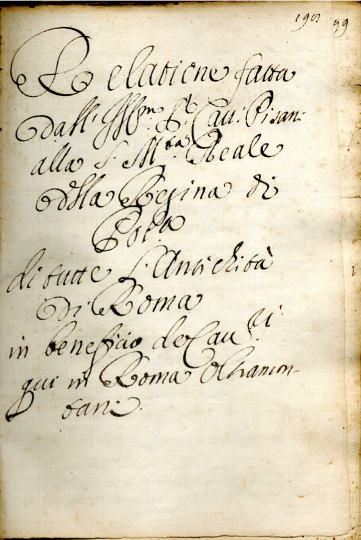 190 59
Relatione fatta
dall' Ill.mo S.r Cau: Pisan:
alla S. M.tà Reale
della Regina di
Polª
di tutte l'Antichità
di Roma
in beneficio de Cau.ri
qui in Roma Oltramon-
tani.